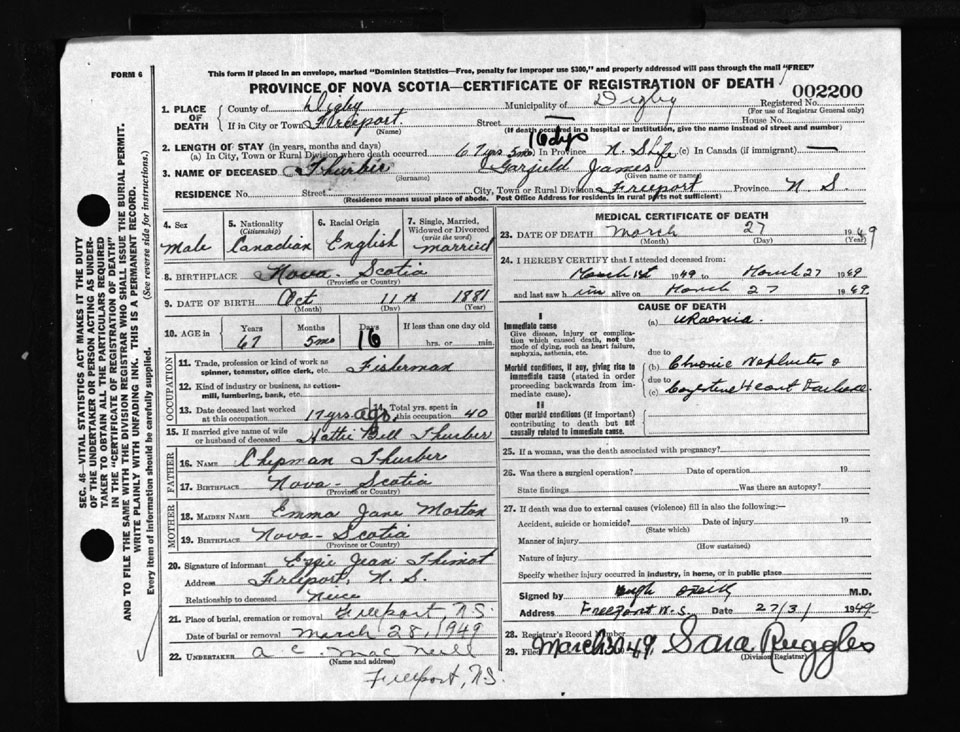 FORM 6
This form if placed in an envelope, marked "Dominion Statistics—Free, penalty for improper use $300," and properly addressed will pass through the mail "FREE"
PROVINCE OF NOVA SCOTIA—CERTIFICATE OF REGISTRATION OF DEATH
002200
1. PLACE OF DEATH
County of Digby Municipality of Digby Registered No.
(For use of Registrar General only)
If in City or Town Freeport. Street House No.
(Name) (If death occurred in a hospital or institution, give the name instead of street and number)
16 dys
2. LENGTH OF STAY (in years, months and days)
(a) In City, Town or Rural Division where death occurred 67 yrs 5mo In Province N. S. (c) In Canada (if immigrant) —
3. NAME OF DECEASED Thurber Garfield James.
(Surname) (Given name or name)
RESIDENCE No. Street City, Town or Rural Division Freeport Province N. S.
(Residence means usual place of abode. Post Office Address for residents in rural parts not sufficient)
4. Sex 5. Nationality (Citizenship) 6. Racial Origin 7. Single, Married, Widowed or Divorced (write the word)
Male Canadian English married
8. BIRTHPLACE Nova-Scotia
(Province or Country)
9. DATE OF BIRTH Oct 11th 1881
(Month) (Day) (Year)
10. AGE in Years Months Days If less than one day old
67 5mo 16 hrs. or min.
OCCUPATION
11. Trade, profession or kind of work as spinner, teamster, office clerk, etc. Fisherman
12. Kind of industry or business, as cotton-mill, lumbering, bank, etc.
13. Date deceased last worked at this occupation 17 yrs ago. 14. Total yrs. spent in this occupation 40
15. If married give name of wife or husband of deceased Hattie Bell Thurber
FATHER
16. NAME Chipman Thurber
17. BIRTHPLACE Nova-Scotia
(Province or Country)
MOTHER
18. MAIDEN NAME Emma Jane Morton
19. BIRTHPLACE Nova-Scotia
(Province or Country)
20. Signature of informant Jean Thimot
Address Freeport, N. S.
Relationship to deceased Neice
21. Place of burial, cremation or removal Freeport, N.S.
Date of burial or removal March 28, 1949
22. UNDERTAKER A C. MacNeill
(Name and address)
Freeport, N.S.
MEDICAL CERTIFICATE OF DEATH
23. DATE OF DEATH March 27 1949
(Month) (Day) (Year)
24. I HEREBY CERTIFY that I attended deceased from:
March 1st 1949 to March 27 1949
and last saw him alive on March 27 1949.
CAUSE OF DEATH
I
Immediate cause (a) Uraemia.
Give disease, injury or complication which caused death, not the mode of dying, such as heart failure, asphyxia, asthenia, etc.
due to
Morbid conditions, if any, giving rise to immediate cause (stated in order proceeding backwards from immediate cause). (b) Chronic Nephritis
due to
(c) Congestive Heart Failure.
II
Other morbid conditions (if important) contributing to death but not causally related to immediate cause.
25. If a woman, was the death associated with pregnancy?
26. Was there a surgical operation? Date of operation 19
State findings Was there an autopsy?
27. If death was due to external causes (violence) fill in also the following:—
Accident, suicide or homicide? Date of injury 19
(State which)
Manner of injury
(How sustained)
Nature of injury
Specify whether injury occurred in industry, in home, or in public place
Signed by Hugh M.D.
Address Freeport N.S. Date 27/3/ 1949
28. Registrar's Record Number
29. Filed March 30 49. Sara Ruggles
(Division Registrar)
SEC. 46—VITAL STATISTICS ACT MAKES IT THE DUTY
OF THE UNDERTAKER OR PERSON ACTING AS UNDER-
TAKER TO OBTAIN ALL THE PARTICULARS REQUIRED
IN THE "CERTIFICATE OF REGISTRATION OF DEATH"
AND TO FILE THE SAME WITH THE DIVISION REGISTRAR WHO SHALL ISSUE THE BURIAL PERMIT.
WRITE PLAINLY WITH UNFADING INK. THIS IS A PERMANENT RECORD.
Every item of information should be carefully supplied. (See reverse side for instructions.)